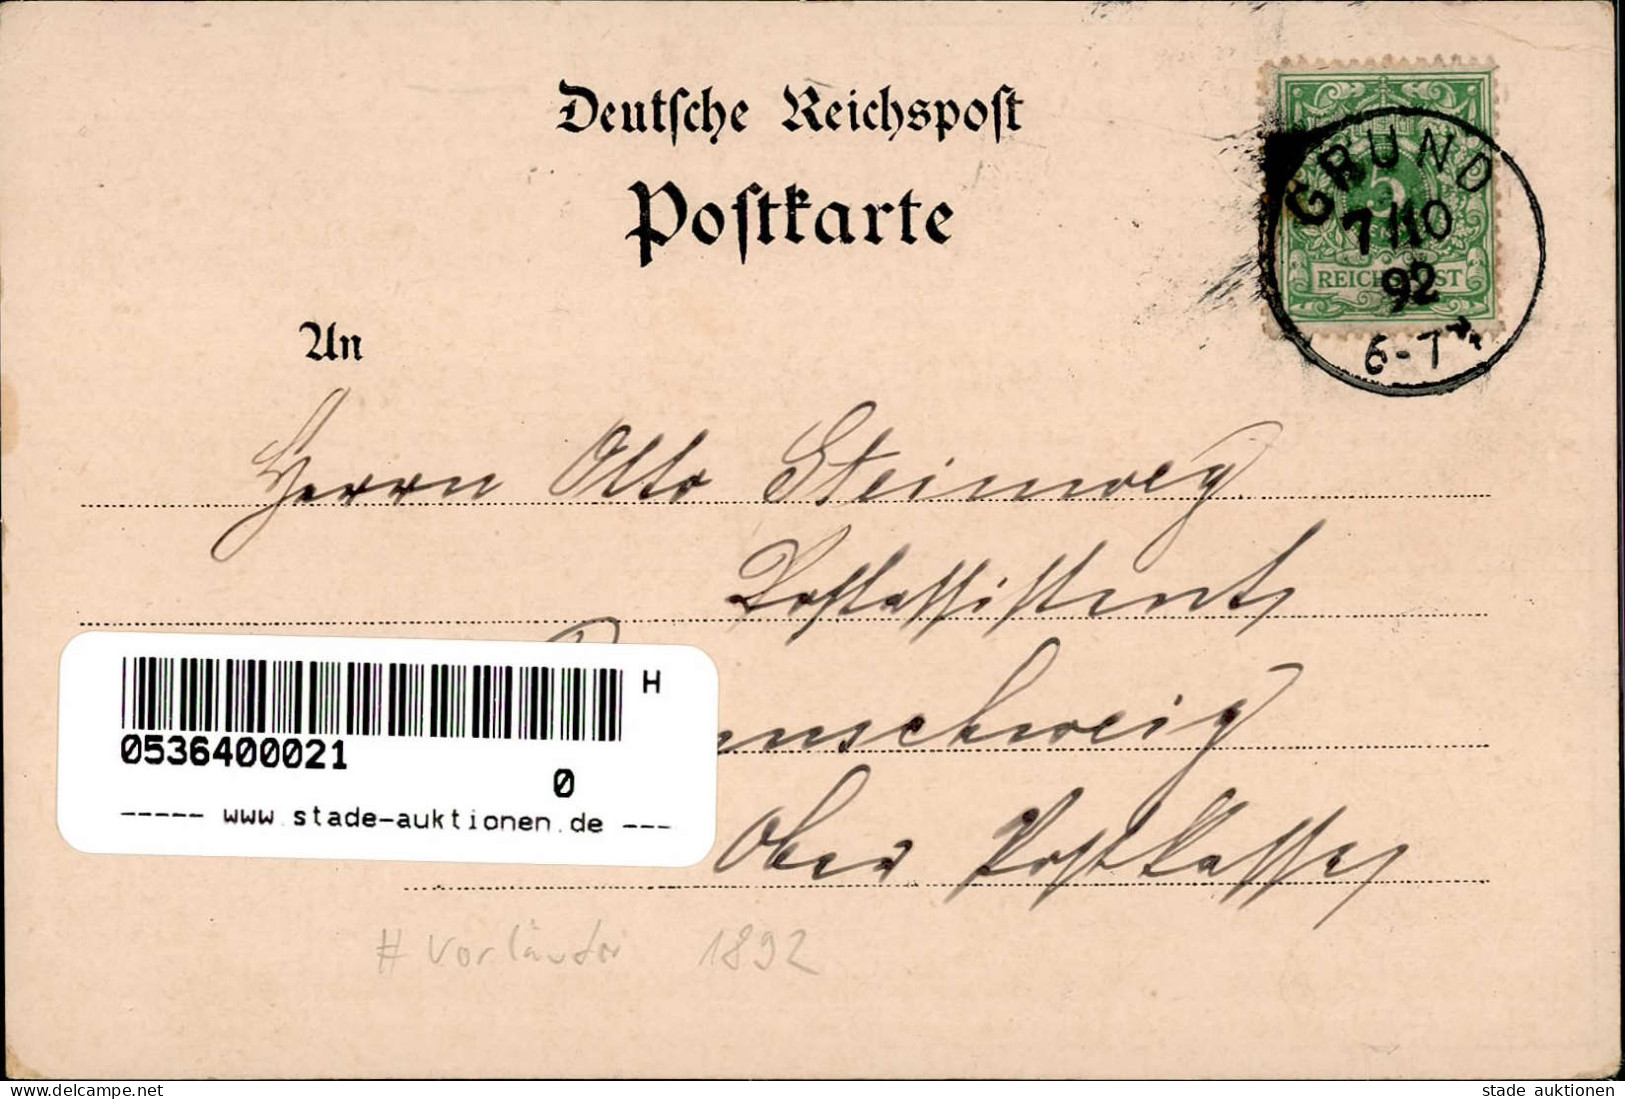 Deutsche Reichspost
Postkarte
5
REICHSPOST
GRUND
7/10
92
6-7 N.
An
Herrn Otto Steinweg
Postassistent
nnschweig
Ober Postkasse
H
0536400021
0
----- www.stade-auktionen.de ---
# Vorläufer 1892
delcampe.net
stade auktionen